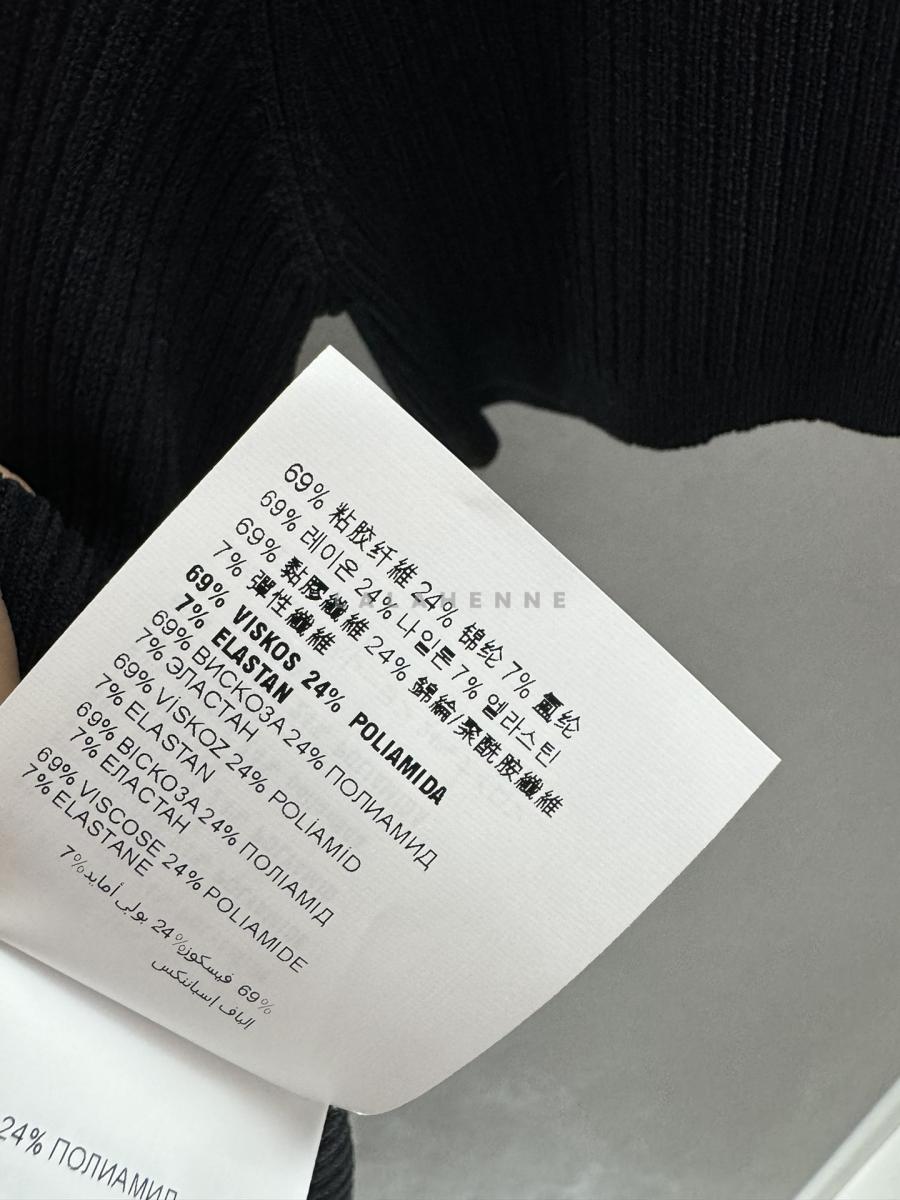 69% 粘胶纤维 24% 锦纶 7% 氨纶
69% 레이온 24% 나일론 7% 엘라스틴
69% 黏膠纖維 24% 錦綸/聚酰胺纖維
7% 彈性纖維
69% VISKOS 24% POLIAMIDA
7% ELASTAN
69% ВИСКОЗА 24% ПОЛИАМИД
7% ЭЛАСТАН
69% VİSKOZ 24% POLİAMİD
7% ELASTAN
69% ВІСКОЗА 24% ПОЛІАМІД
7% ЕЛАСТАН
69% VISCOSE 24% POLIAMIDE
7% ELASTANE
69% فيسكوز 24% بولي أمايد 7%
الياف اسباننكس
ALAHENNE
24% ПОЛИАМИД